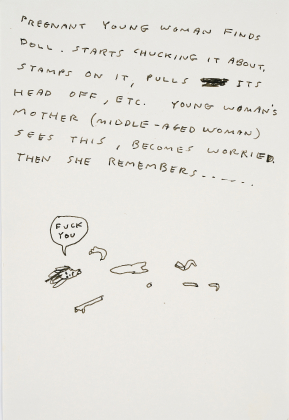 PREGNANT YOUNG WOMAN FINDS
DOLL. STARTS CHUCKING IT ABOUT,
STAMPS ON IT, PULLS ITS
HEAD OFF, ETC. YOUNG WOMAN'S
MOTHER (MIDDLE-AGED WOMAN)
SEES THIS, BECOMES WORRIED.
THEN SHE REMEMBERS......
FUCK
YOU